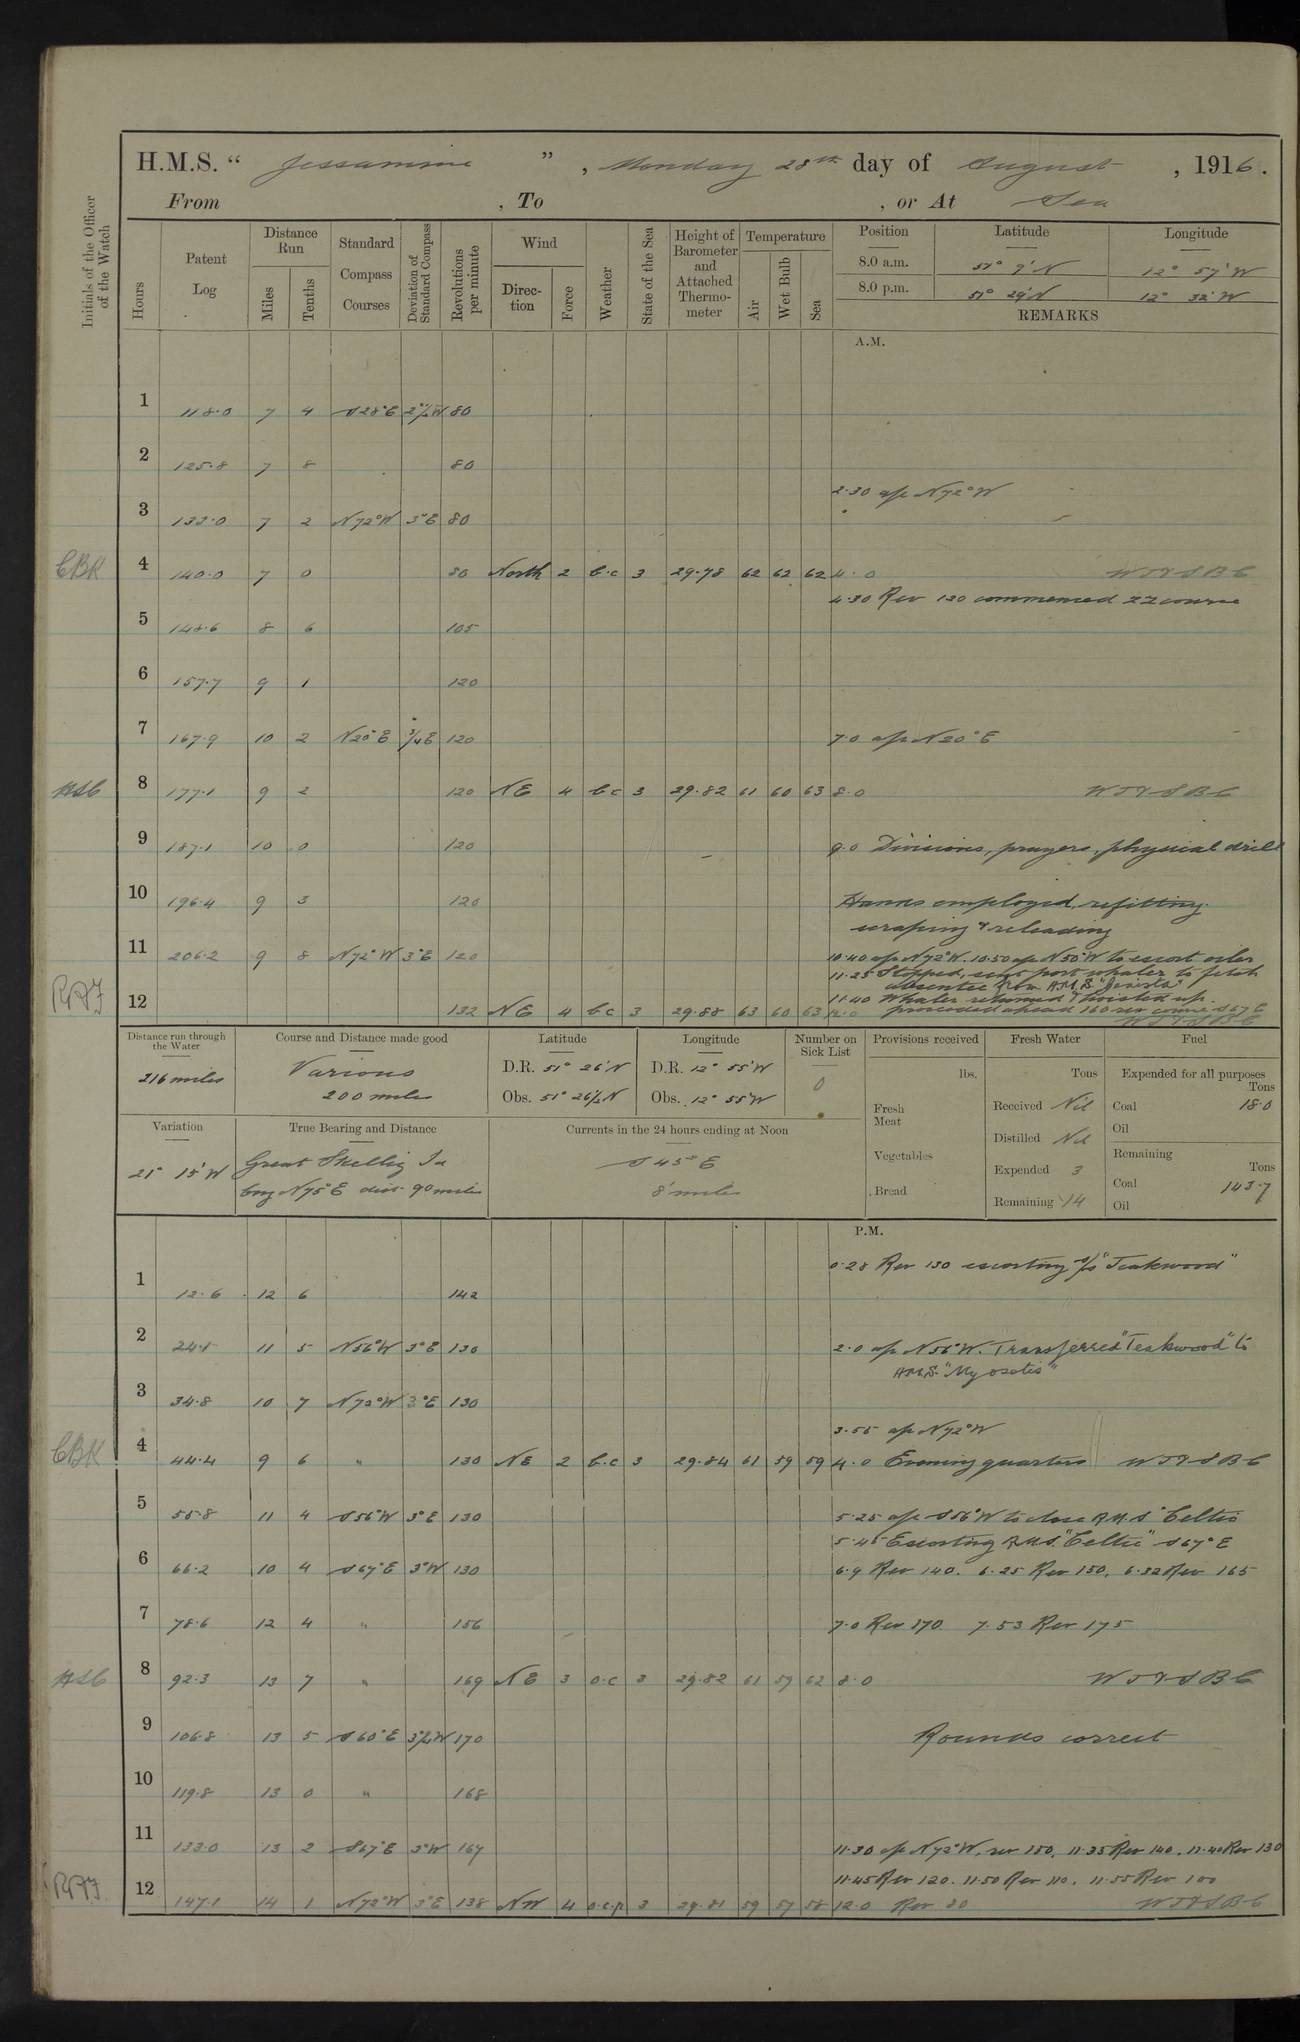 H.M.S. “ Jessamine ” , Monday 28th day of August , 1916 .
From , To , or At Sea
Initials of the Officer of the Watch
Hours
Patent Log
Distance Run
Miles
Tenths
Standard Compass Courses
Deviation of Standard Compass
Revolutions per minute
Wind
Direc-tion
Force
Weather
State of the Sea
Height of Barometer and Attached Thermo-meter
Temperature
Air
Wet Bulb
Sea
Position Latitude Longitude
8.0 a.m. 51° 9' N 12° 57' W
8.0 p.m. 51° 29' N 12° 32' W
REMARKS
A.M.
1 118.0 7 4 S28°E 2½W 80
2 125.8 7 8 80
2.30 a/c N72°W
3 133.0 7 2 N72°W 3°E 80
CBK 4 140.0 7 0 80 North 2 b.c 3 29.78 62 62 62 4.0 WTTSBC
4.30 Rev 120 commenced ZZ course
5 148.6 8 6 105
6 157.7 9 1 120
7 167.9 10 2 N20°E ¾E 120 7.0 a/c N20°E
8 177.1 9 2 120 NE 4 bc 3 29.82 61 60 63 8.0 WTTSBC
9 187.1 10 0 120 9.0 Divisions, prayers, physical drill
10 196.4 9 3 120 Hands employed, refitting
scraping & releading
11 206.2 9 8 N72°W 3°E 120 10.40 a/c N72°W. 10.50 a/c N50°W to escort oiler
11.25 Stopped, sent port whaler to fetch
absentee from H.M.S. "Genista"
11.40 Whaler returned & hoisted up.
12 132 NE 4 bc 3 29.88 63 60 63 12.0 proceeded ahead 160 rev course S67E
WTTSBC
Distance run through the Water
216 miles
Course and Distance made good
Various
200 miles
Latitude
D.R. 51° 26' N
Obs. 51° 26½ N
Longitude
D.R. 12° 55' W
Obs. 12° 55' W
Number on Sick List
0
Provisions received
lbs.
Fresh Meat
Vegetables
Bread
Fresh Water
Tons
Received Nil
Distilled Nil
Expended 3
Remaining 14
Fuel
Expended for all purposes
Tons
Coal 18.0
Oil
Remaining
Tons
Coal 143.7
Oil
Variation
21° 15' W
True Bearing and Distance
Great Skellig Id
brg N75°E dist 90 miles
Currents in the 24 hours ending at Noon
S 45° E
8 miles
P.M.
0.28 Rev 130 escorting s/s "Teakwood"
1 12.6 12 6 142
2 24.1 11 5 N56°W 3°E 130 2.0 a/c N56°W. Transferred "Teakwood" to
H.M.S. "Myosotis"
3 34.8 10 7 N72°W 3°E 130
3.55 a/c N72°W
CBK 4 44.4 9 6 " 130 NE 2 b.c 3 29.84 61 59 59 4.0 Evening quarters WTTSBC
5 55.8 11 4 S56°W 3°E 130 5.25 a/c S56°W to close R.M.S "Celtic
5.45 Escorting R.M.S. "Celtic" S67°E
6 66.2 10 4 S67°E 3°W 130 6.9 Rev 140. 6.25 Rev 150, 6.32 Rev 165
7 78.6 12 4 " 156 7.0 Rev 170 7.53 Rev 175
8 92.3 13 7 " 169 NE 3 o.c 3 29.82 61 59 62 8.0 WTTSBC
9 106.8 13 5 S60°E 170 Rounds correct
10 119.8 13 0 " 168
11 133.0 13 2 S67°E 3°W 167 11.30 a/c N72°W, rev 150, 11.35 Rev 140, 11.40 Rev 130
11.45 Rev 120. 11.50 Rev 110. 11.55 Rev 100
12 147.1 14 1 N72°W 3°E 138 NW 4 o.c.p 3 29.81 59 57 58 12.0 Rev 80 WTTSBC